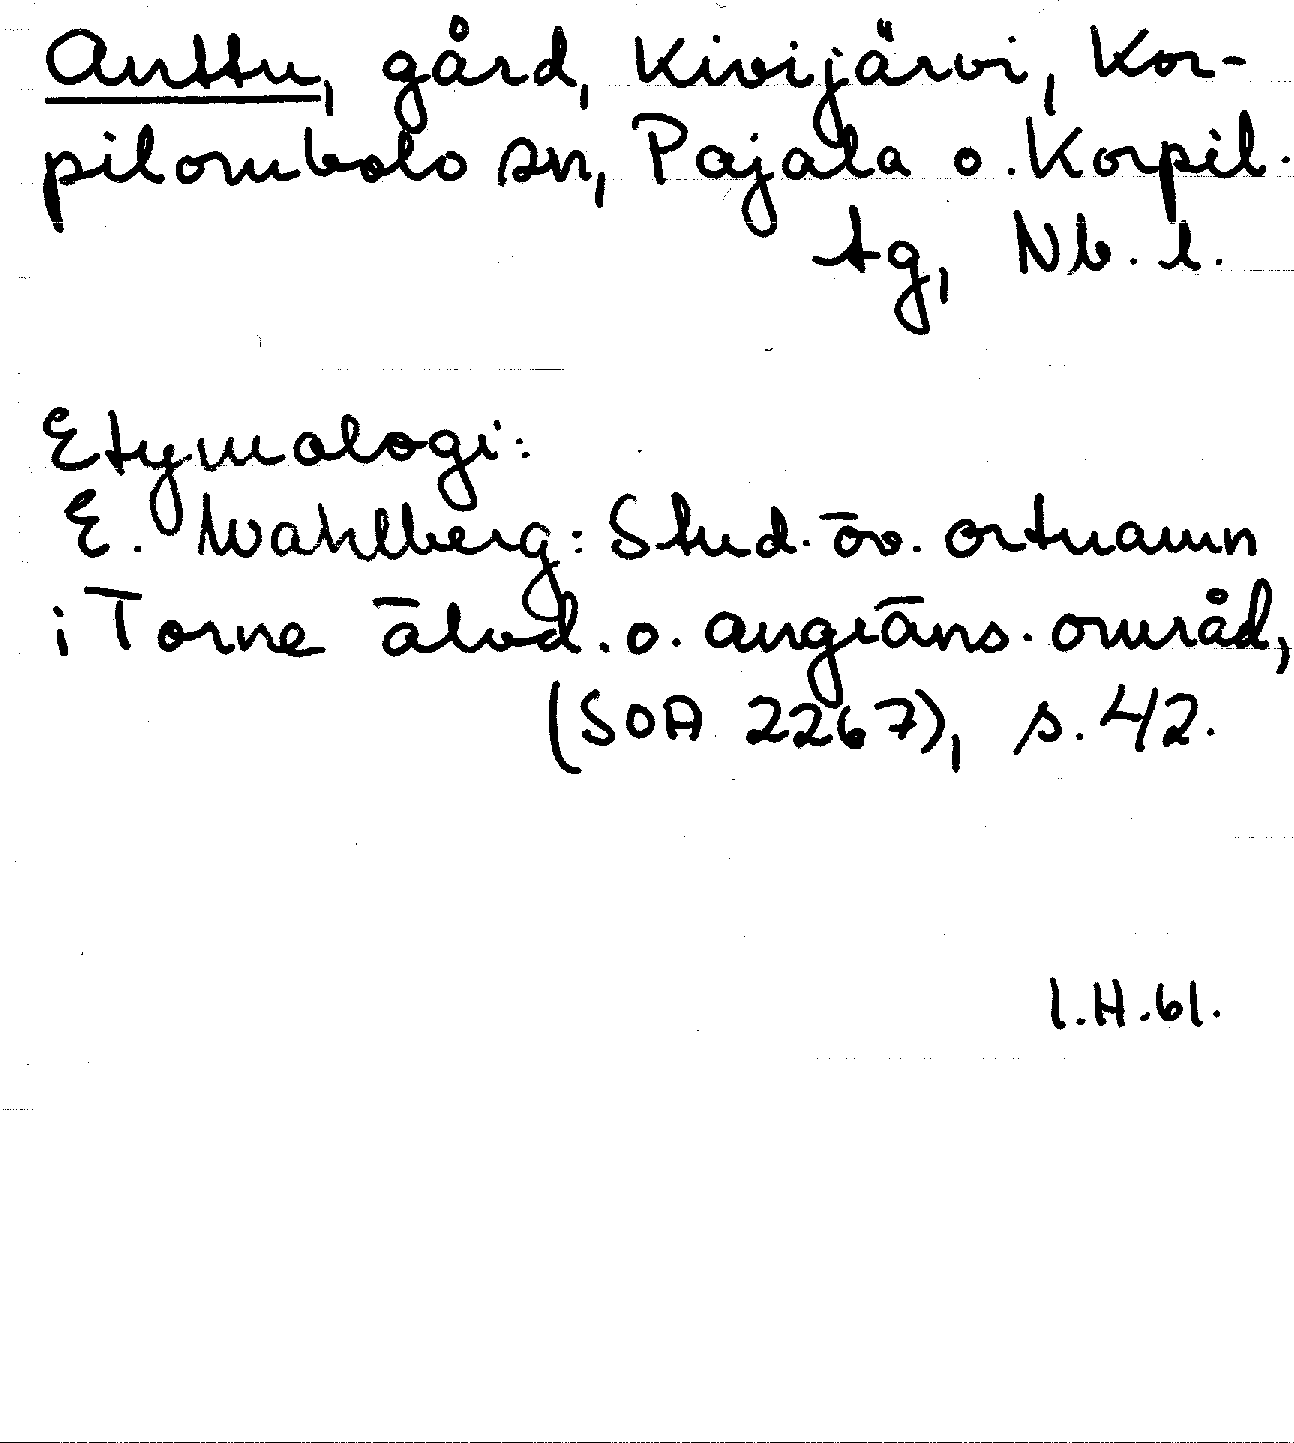 Anttu, gård, Kivijärvi, Kor-
pilombolo sn, Pajala o. Korpil.
tg, Nb. l.
Etymologi:
E. Wahlberg: Stud. öv. ortnamn
i Torne älvd. o. angräns. område,
(SOA 2267), s. 42.
I.H.61.